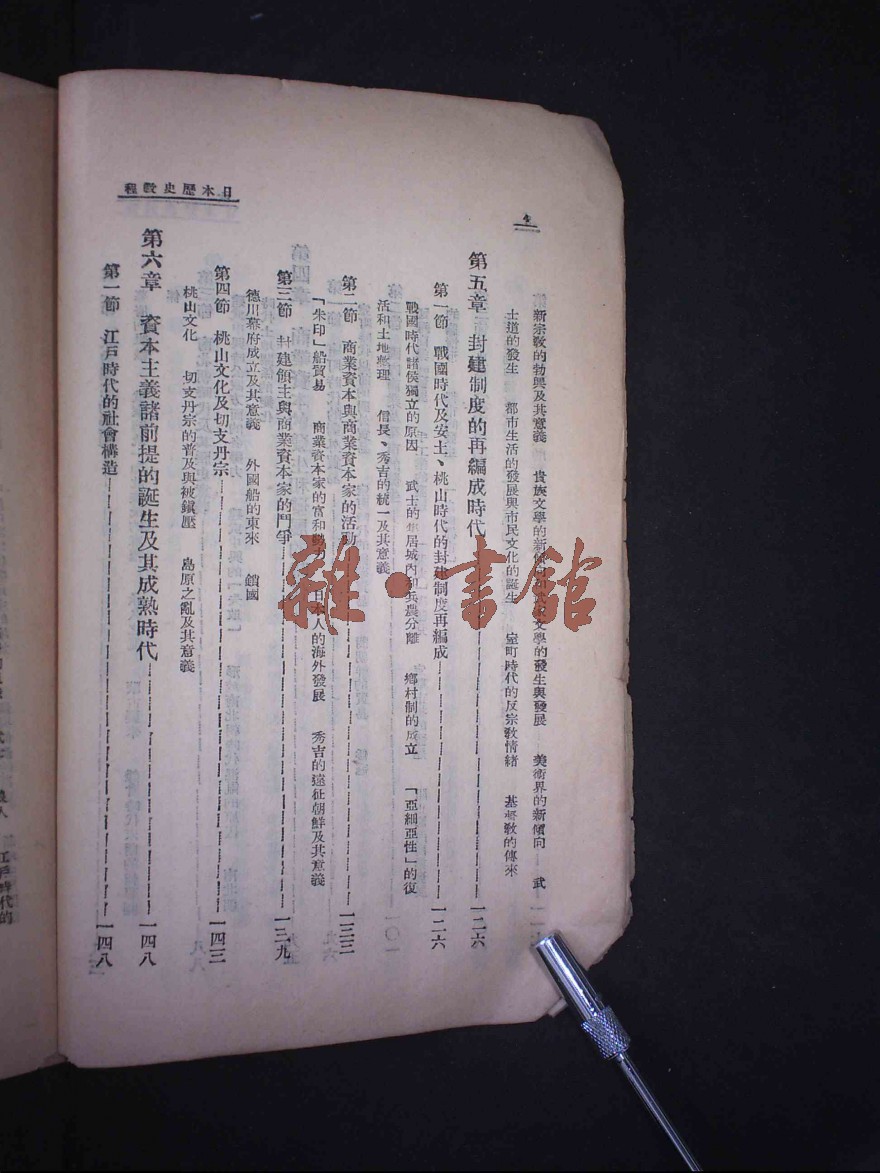 日本歷史教程
新宗教的勃興及其意義 貴族文學的新傾向 文學的發生與發展 美術界的新傾向 武
士道的發生 都市生活的發展與市民文化的誕生 室町時代的反宗教情緒 基督教的傳來
第五章 封建制度的再編成時代 一二六
第一節 戰國時代及安土、桃山時代的封建制度再編成 一二六
戰國時代諸侯獨立的原因 武士的集居城內和兵農分離 鄉村制的成立 「亞細亞性」的復
活和土地整理 信長、秀吉的統一及其意義
第二節 商業資本與商業資本家的活動 一三三
「朱印」船貿易 商業資本家的富和勢力 日本人的海外發展 秀吉的遠征朝鮮及其意義
第三節 封建領主與商業資本家的鬥爭 一三九
德川幕府成立及其意義 外國船的東來 鎖國
第四節 桃山文化及切支丹宗 一四三
桃山文化 切支丹宗的普及與被鎭壓 島原之亂及其意義
第六章 資本主義諸前提的誕生及其成熟時代 一四八
第一節 江戶時代的社會構造 一四八
雜·書館